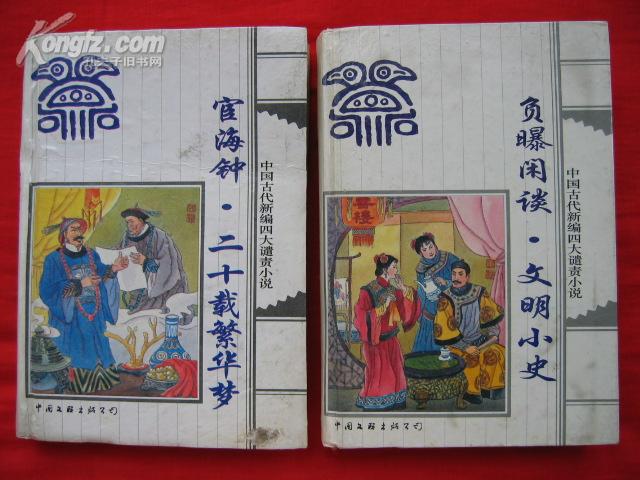 Kongfz.com
孔夫子旧书网
宦海钟·二十载繁华梦
中国古代新编四大谴责小说
中国文联出版公司
负曝闲谈·文明小史
中国古代新编四大谴责小说
中国文联出版公司